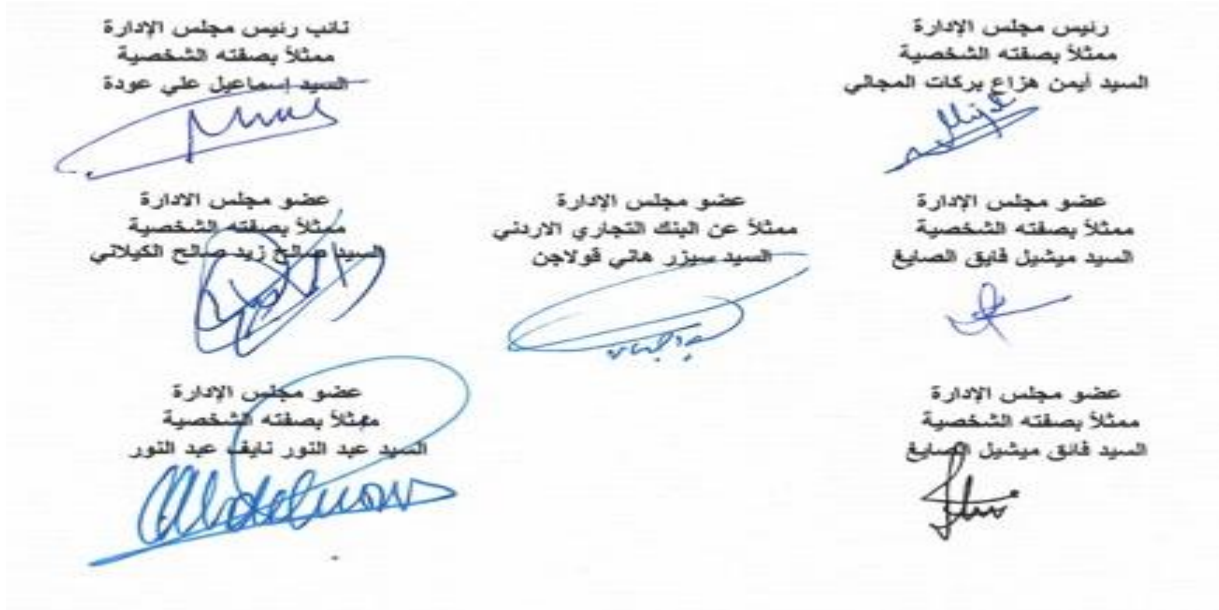 رئيس مجلس الإدارة
ممثلاً بصفته الشخصية
السيد أيمن هزاع بركات المجالي
نائب رئيس مجلس الإدارة
ممثلاً بصفته الشخصية
السيد إسماعيل علي عودة
عضو مجلس الإدارة
ممثلاً بصفته الشخصية
السيد ميشيل فايق الصايغ
عضو مجلس الإدارة
ممثلاً عن البنك التجاري الاردني
السيد سيزر هاني قولاجن
عضو مجلس الادارة
ممثلاً بصفته الشخصية
السيد صالح زيد صالح الكيلاني
عضو مجلس الإدارة
ممثلاً بصفته الشخصية
السيد فائق ميشيل الصايغ
عضو مجلس الإدارة
ممثلاً بصفته الشخصية
السيد عبد النور نايف عبد النور